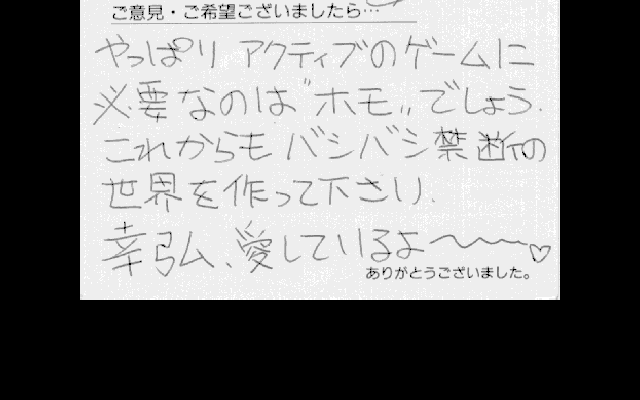 ご意見・ご希望ございましたら…
やっぱり アクティブのゲームに
必要なのは"ホモ"でしょう.
これからも バシバシ禁断の
世界を作って下さい.
幸弘、愛しているよ〜〜〜♡
ありがとうございました。